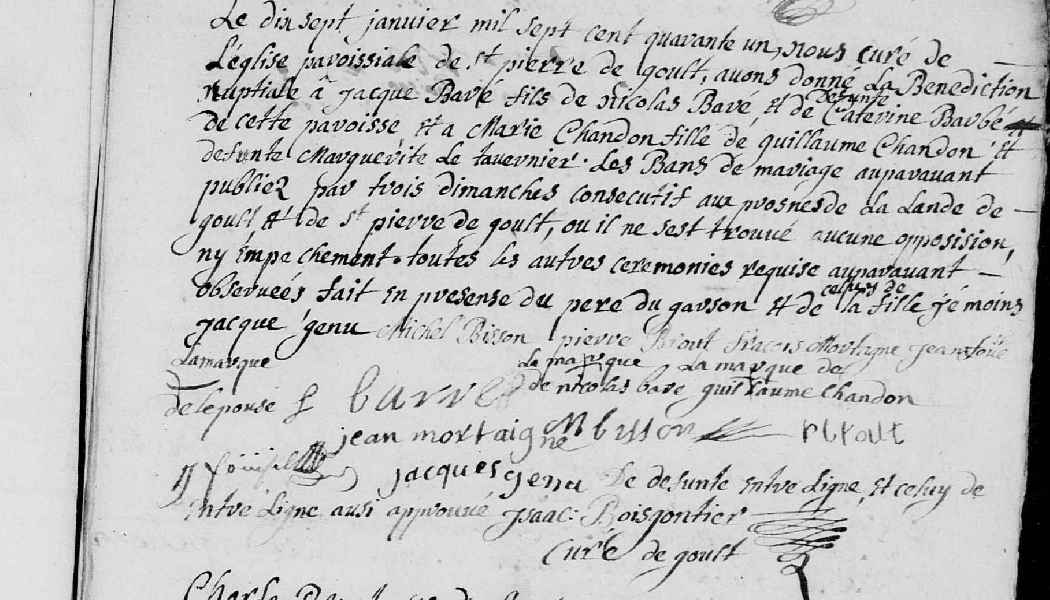 Le dix sept janvier mil sept cent quarante un, nous curé de
L'église paroissiale de St pierre de goult, avons donné La Benediction
Nuptiale â jacque Baré fils de nicolas Baré, Et de defunte Caterine Barbé
de cette paroisse Et a Marie Chandon fille de guillaume Chandon Et
defunte Marguerite Le tavernier. Les Bans de mariage auparavant
publiez par trois dimanches consecutif aux prosnes de La Lande de
goult Et de St pierre de goult, ou il ne sest trouvé aucune opposision,
ny Empechement. toutes les autres ceremonies requise auparavant
observeés fait En presense du pere du garson Et de celuy de la fille
jacque genu Michel Bisson pierre Mortagne jean
La marque Le marque La marque de
de lepouse de nicolas bare guillaume Chandon
barre
jean mortaigne M bisson
jacques genu Le defunte Entre Ligne, Et celuy de
Entre Ligne ausi approuvé Isaac: Boisgontier
Curé de goult